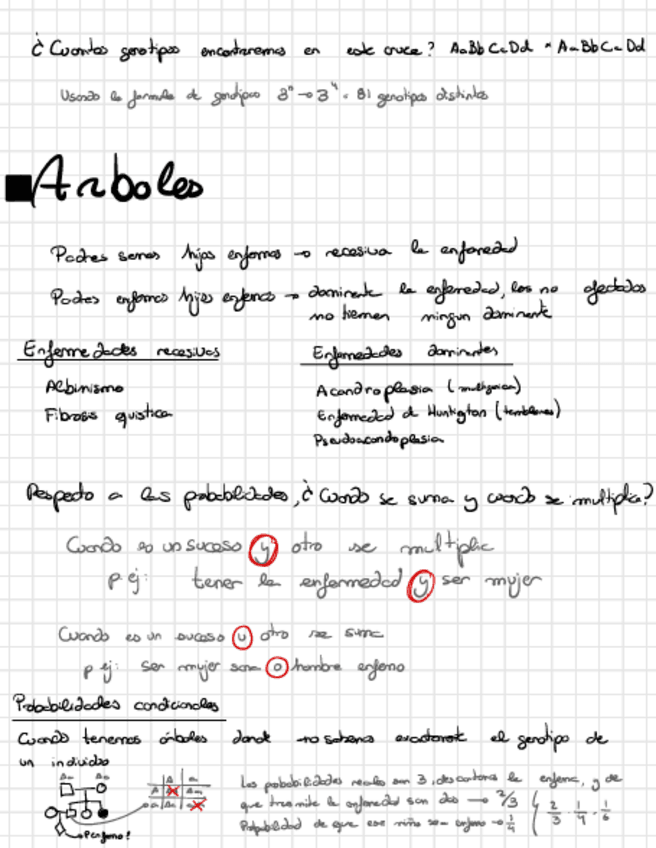 ¿Cuantos genotipos encontraremos en este cruce? AaBbCcDd × AaBbCcDd
Usando la formula de genotipos 3ⁿ → 3⁴ = 81 genotipos distintos
Arboles
Padres sanos hijos enfermos → recesiva la enfermedad
Padres enfermos hijos enfermos → dominante la enfermedad, los no afectados
no tienen ningun dominante
Enfermedades recesivas
Albinismo
Fibrosis quistica
Enfermedades dominantes
Acondroplasia
Enfermedad de Huntigton (temblores)
Pseudoacondoplasia
Respecto a las probabilidades, ¿Cuando se suma y cuando se multiplica?
Cuando es un suceso y otro se multiplic
p ej: tener la enfermedad y ser mujer
Cuando es un suceso u otro se suma
p ej: ser mujer sana o hombre enfermo
Probabilidades condicionales
Cuando tenemos árboles donde no sabemos exactamente el genotipo de
un individuo
Aa Aa
A a
A Aa
a Aa
¿Enfermo?
Las probabilidades reales son 3, descartamos la enferma, y de
que trasmita la enfermedad son dos → 2/3
Probabilidad de que ese niño sea enfermo → 1/4
2/3 · 1/4 · 1/6